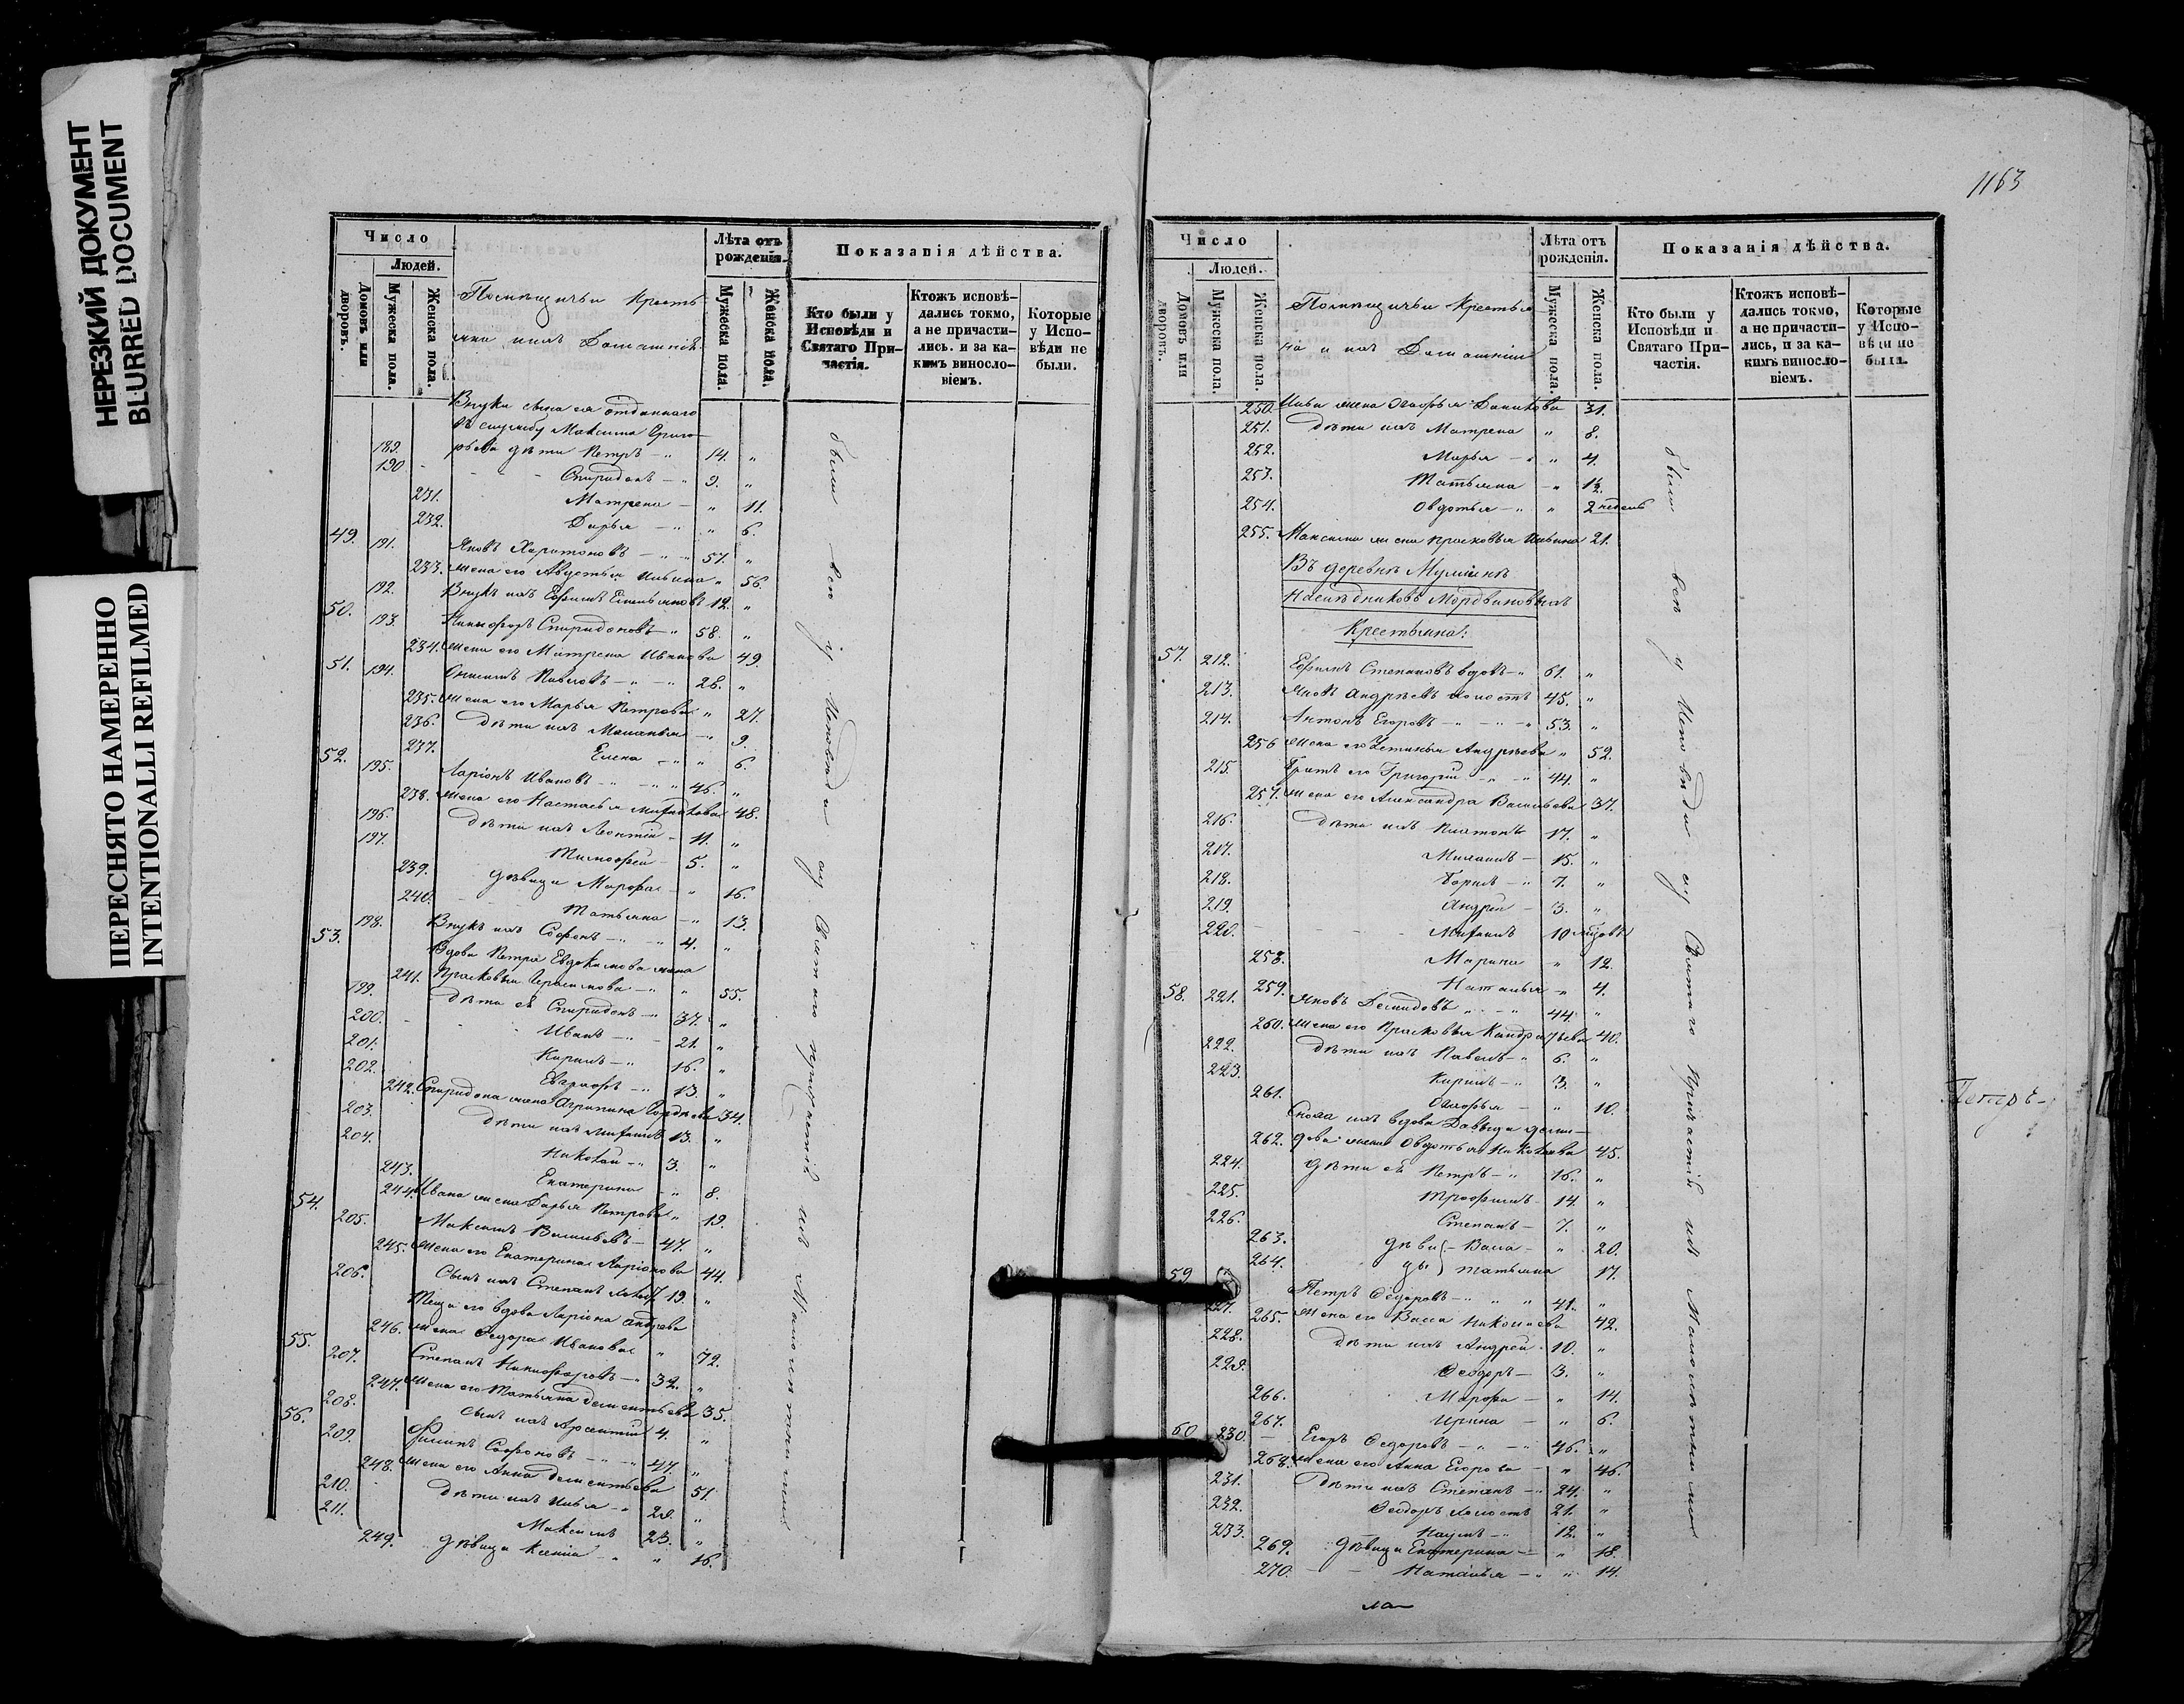 НЕРЕЗКИЙ ДОКУМЕНТ
BLURRED DOCUMENT
ПЕРЕСНЯТО НАМЕРЕННО
INTENTIONALLI REFILMED
Число
Людей.
Домовъ или дворовъ.
Мужеска пола.
Женска пола.
Помещичьи Кресть
яна и ихъ Домашніе.
Лѣта отъ рожденія.
Мужеска пола.
Женска пола.
Показанія дѣйства.
Кто были у Исповѣди и Святаго Причастія.
Ктожъ исповѣдались токмо, а не причастились. и за какимъ винословіемъ.
Которые у Исповѣди не были.
Внуки сына ея отданнаго
въ службу Максима Григо-
189. рьева дѣти Петръ 14. "
190. Спиридонъ 9. "
231. Матрена " 11.
232. Дарья " 6.
49. 191. Яковъ Харитоновъ 57. "
233. жена его Авдотья Ильина " 56.
192. Внукъ ихъ Ефимъ Емельяновъ 12. "
50. 193. Никифоръ Спиридоновъ 58. "
234. жена его Матрена Иванова 49.
51. 194. Павловъ 28. "
235. жена его Марья Петрова " 27.
236. Дѣти ихъ Маланья 9.
237. Елена " 6.
52. 195. Ларіонъ Ивановъ 46. "
238. жена его Настасья 48.
196. Дѣти ихъ Леонтій 11. "
197. Тимофей 5. "
239. дѣвица Марфа " 16.
240. Татьяна " 13.
198. Внукъ ихъ Софонъ 4. "
53. Вдова Петра Евдокимова жена
241. Прасковья Герасимова " 55.
199. Дѣти ея Спиридонъ 37. "
200. Иванъ 21. "
201. Кирилъ 16. "
202. Евграфъ 13. "
242. Спиридона жена Агрипина Гордѣева 34.
203. Дѣти ихъ 13. "
204. Николай 3. "
243. Екатерина " 8.
244. Ивана жена Дарья Петрова " 19.
54. 205. Максимъ Васильевъ 47. "
245. жена его Екатерина Ларіонова 44.
206. Сынъ ихъ Степанъ 19. "
Теща его вдова Ларіона
246. жена Федора Иванова " 72.
55. 207. Степанъ Никифоровъ 32. "
247. жена его Татьяна Дементьева 35.
208. сынъ ихъ Арсентій 4. "
56. 209. Филипъ Софоновъ 47. "
248. жена его Анна Дементьева 51.
210. Дѣти ихъ Илья 28. "
211. Максимъ 23. "
249. дѣвица Ксенія " 16.
были всѣ у Исповѣди и у Святаго причастія изъ Малолѣтными
1163
Число
Людей.
Домовъ или дворовъ.
Мужеска пола.
Женска пола.
Помещичьи Крестья
на и ихъ Домашніи
Лѣта отъ рожденія.
Мужеска пола.
Женска пола.
Показанія дѣйства.
Кто были у Исповѣди и Святаго Причастія.
Ктожъ исповѣдались токмо, а не причастились, и за какимъ винословіемъ.
Которые у Исповѣди не были.
250. Ильи жена Агафья 31.
251. Дѣти ихъ Матрена " 8.
252. Марья " 4.
253. Татьяна 1½.
254. Овдотья " 2 недѣль
255. Максима жена Прасковья Ильина 21.
Въ деревнѣ
Наслѣдниковъ Мордвиновыхъ
Крестьяна:
57. 212. Ефимъ Степановъ вдовъ 61. "
213. Яковъ Андрѣевъ холостъ 45. "
214. Антонъ Егоровъ 53. "
256 жена его Устинья Андрѣева " 52.
215. Братъ его Григорій 44. "
257. жена его Александра Васильева 37.
216. Дѣти ихъ Платонъ 17. "
217. 15. "
218. Борисъ 7. "
219. Андрей 3. "
220. 10 мѣсяцовъ
258. Марина " 12.
259. Наталья " 4.
58. 221. Яковъ Демидовъ 44. "
260. жена его Прасковья Кандратьева 40.
222. Дѣти ихъ Павелъ 6. "
223. Кирилъ 3. "
261. Агафья " 10.
Сноха ихъ вдова Давыда Деми-
262. дова жена Овдотья Николаева 45.
224. дѣти ея Петръ 16. "
225. Трофимъ 14. "
226. Степанъ 7. "
263. дѣви- Васа " 20.
264. цы Татьяна 17.
59 227. Петръ Федоровъ 41. "
265. жена его Васса Николаева 42.
228. Дѣти ихъ Андрей 10. "
229. Ѳеодоръ 3. "
266. Марфа " 14.
267. Ирина " 6.
60 230. Егоръ Федоровъ 46. "
268. жена его Анна Егорова " 46.
231. Дѣти ихъ Степанъ 24. "
232. Ѳеодоръ холостъ 21. "
233. Наумъ 12. "
269. Дѣвица Екатерина " 18.
270. Наталья " 14.
были всѣ у Исповѣди и у Святаго причастія изъ Малолѣтными
Петръ